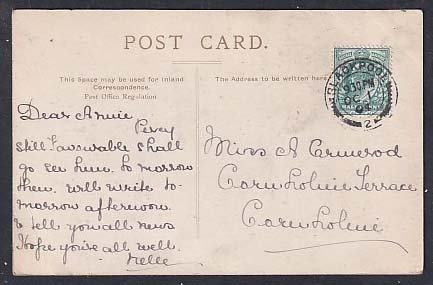 POST CARD.
This Space may be used for Inland
Correspondence.
Post Office Regulation
The Address to be written here
BLACKPOOL
9 30 PM
OC
Dear Annie
Percy
still favourable shall
go see him to morrow
then. will write to-
morrow afternoon
& tell you all news
Hope you're all well.
Nelle
Miss A Ormerod
Cornholme Terrace
Cornholme